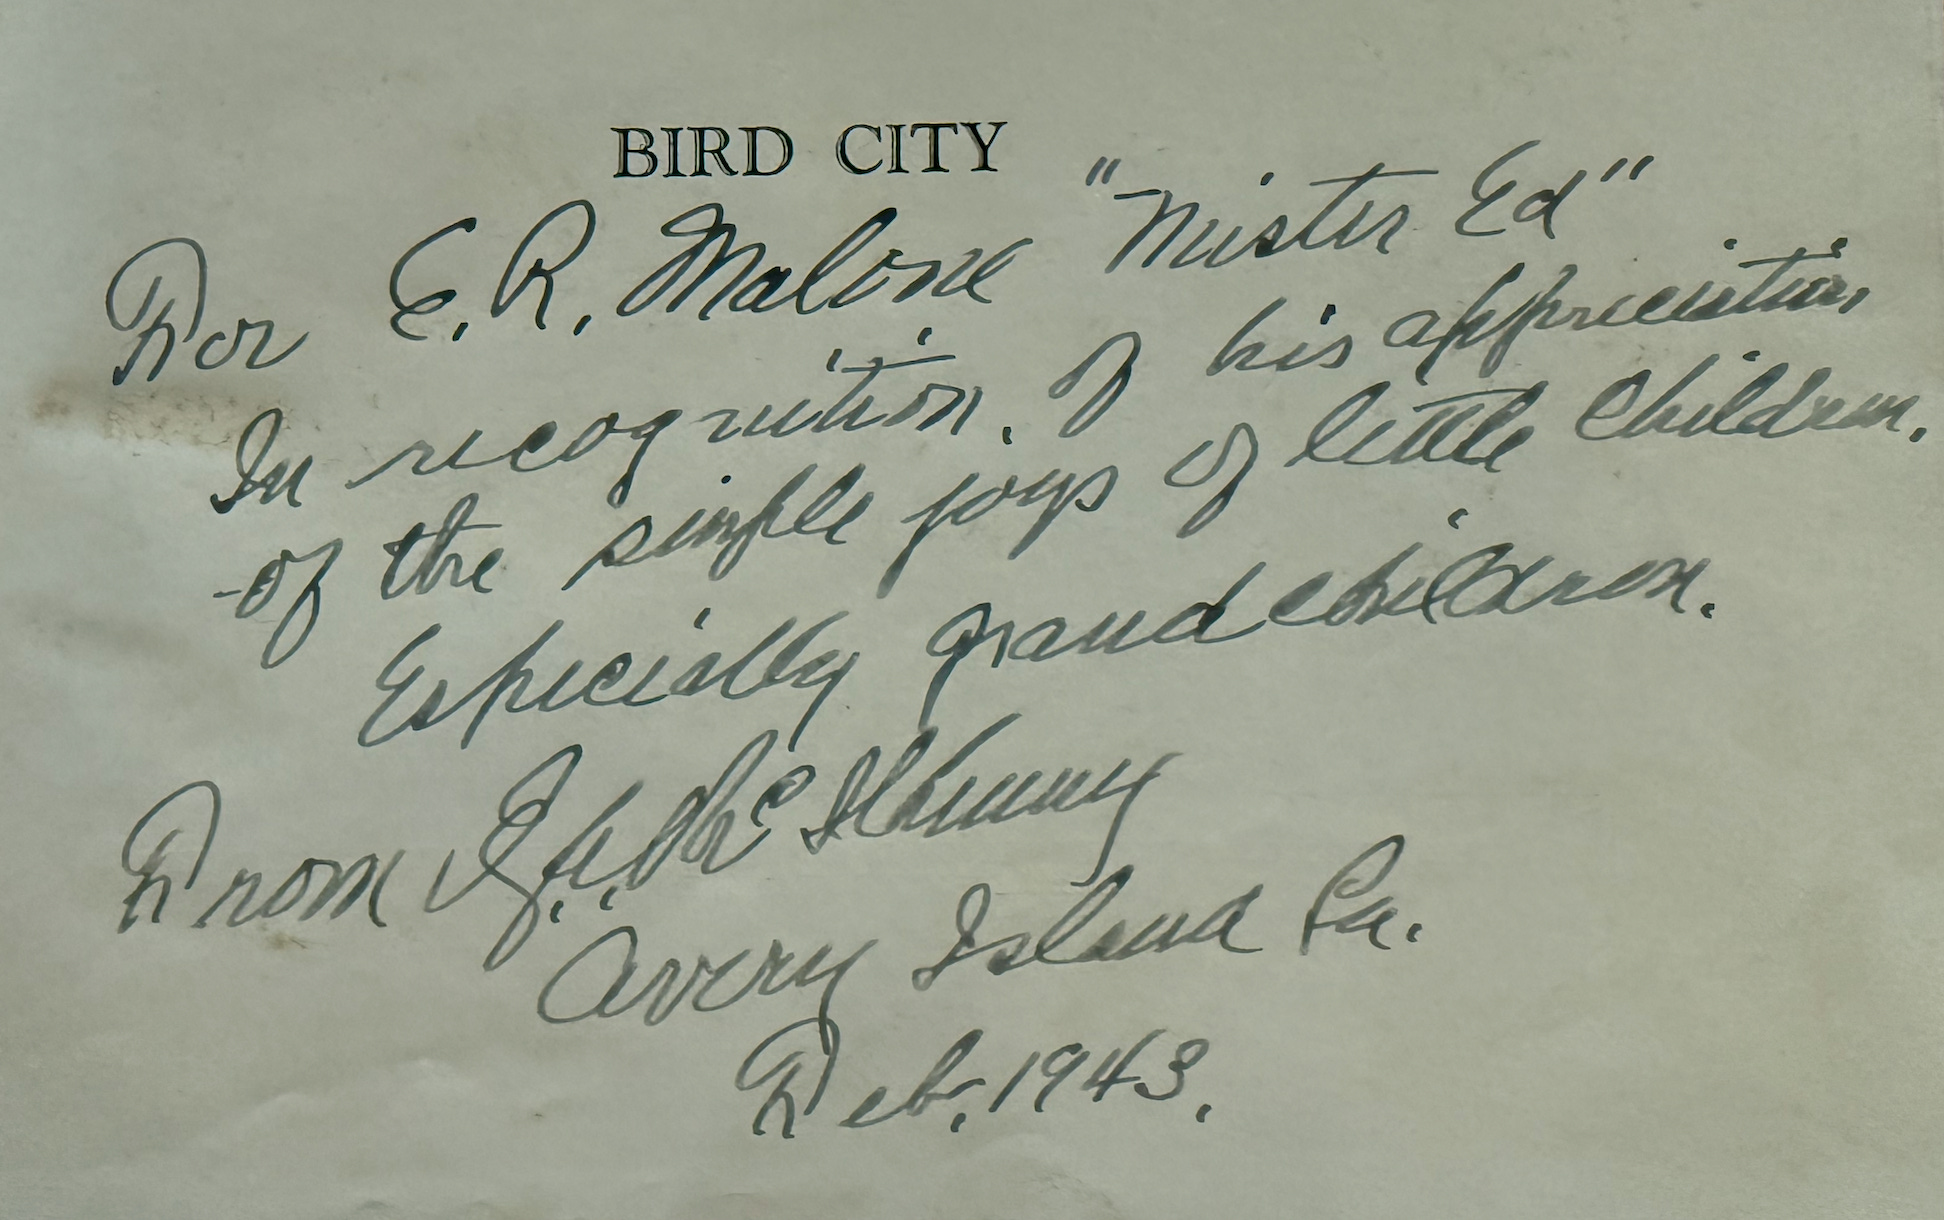 BIRD CITY
For E. R. Malone "Mister Ed"
In recognition. of his appreciation,
-of the simple joys of little Children.
Especially grandchildren.
From E. A. McIlhenny
Avery Island La.
Feb. 1943.